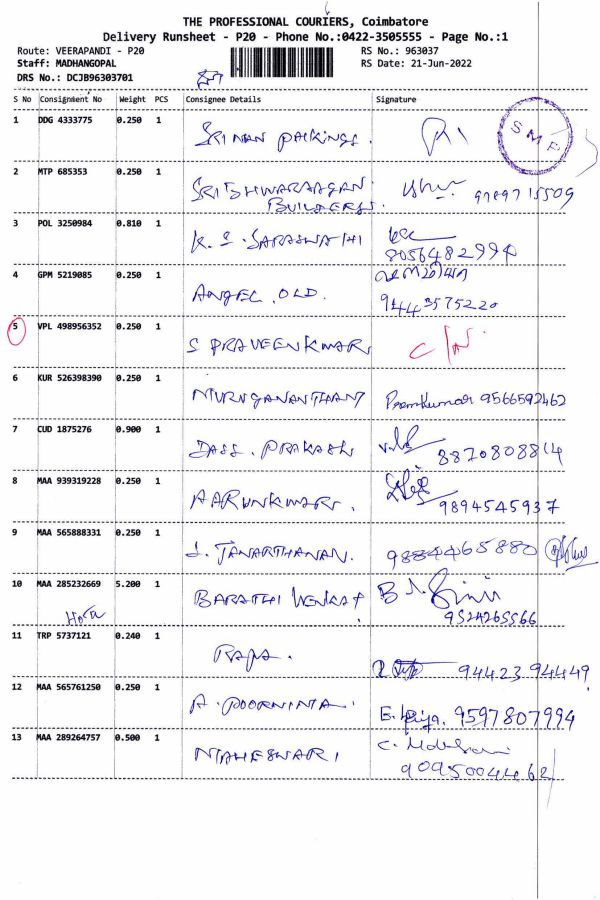 THE PROFESSIONAL COURIERS, Coimbatore
Delivery Runsheet - P20 - Phone No.:0422-3505555 - Page No.:1
Route: VEERAPANDI - P20 RS No.: 963037
Staff: MADHANGOPAL RS Date: 21-Jun-2022
DRS No.: DCJB96303701
S No Consignment No Weight PCS Consignee Details Signature
1 DDG 4333775 0.250 1 SRI MAN PACKINGS. SMP
2 MTP 685353 0.250 1 SRI ISHWARAAGAN 9789715509
BUILDERS.
3 POL 3250984 0.810 1 K. S. SARASWATHI
8056482994
4 GPM 5219085 0.250 1 ANGEL. OLD.
9443575220
5 VPL 498956352 0.250 1 S PRAVEENKUMAR
6 KUR 526398390 0.250 1 MURUGANANTHAM Premkumar 9566592462
7 CUD 1875276 0.900 1 DASS. PRAKASH
8870808814
8 MAA 939319228 0.250 1 AARUNKUMAR.
9894545937
9 MAA 565888331 0.250 1 J. JANARTHANAN. 9884465880
10 MAA 285232669 5.200 1 BARATHI VENKAT
9524265566
11 TRP 5737121 0.240 1 RAJA.
94423 94449
12 MAA 565761250 0.250 1 A. POORNIMA. 9597807994
13 MAA 289264757 0.500 1 MAHESWARI
9095004462